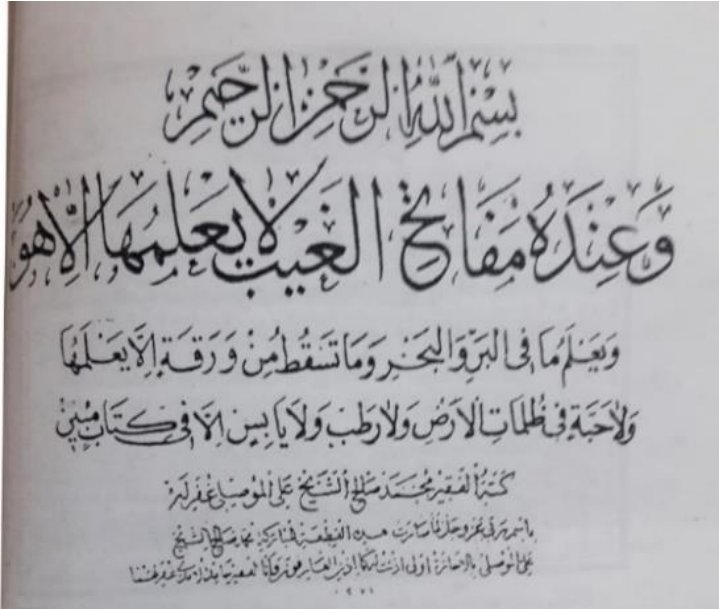 بِسْمِ اللّٰهِ الرَّحْمٰنِ الرَّحِيْمِ
وَعِنْدَهُ مَفَاتِحُ الْغَيْبِ لَا يَعْلَمُهَا اِلَّا هُوَ
وَيَعْلَمُ مَا فِى الْبَرِّ وَالْبَحْرِ وَمَا تَسْقُطُ مِنْ وَرَقَةٍ اِلَّا يَعْلَمُهَا
وَلَا حَبَّةٍ فِى ظُلُمَاتِ الْاَرْضِ وَلَا رَطْبٍ وَلَا يَابِسٍ اِلَّا فِى كِتَابٍ مُبِيْنٍ
كتبه الفقير محمد صالح الشيخ على الموصلى غفر له
صالح الشيخ
على الموصلى